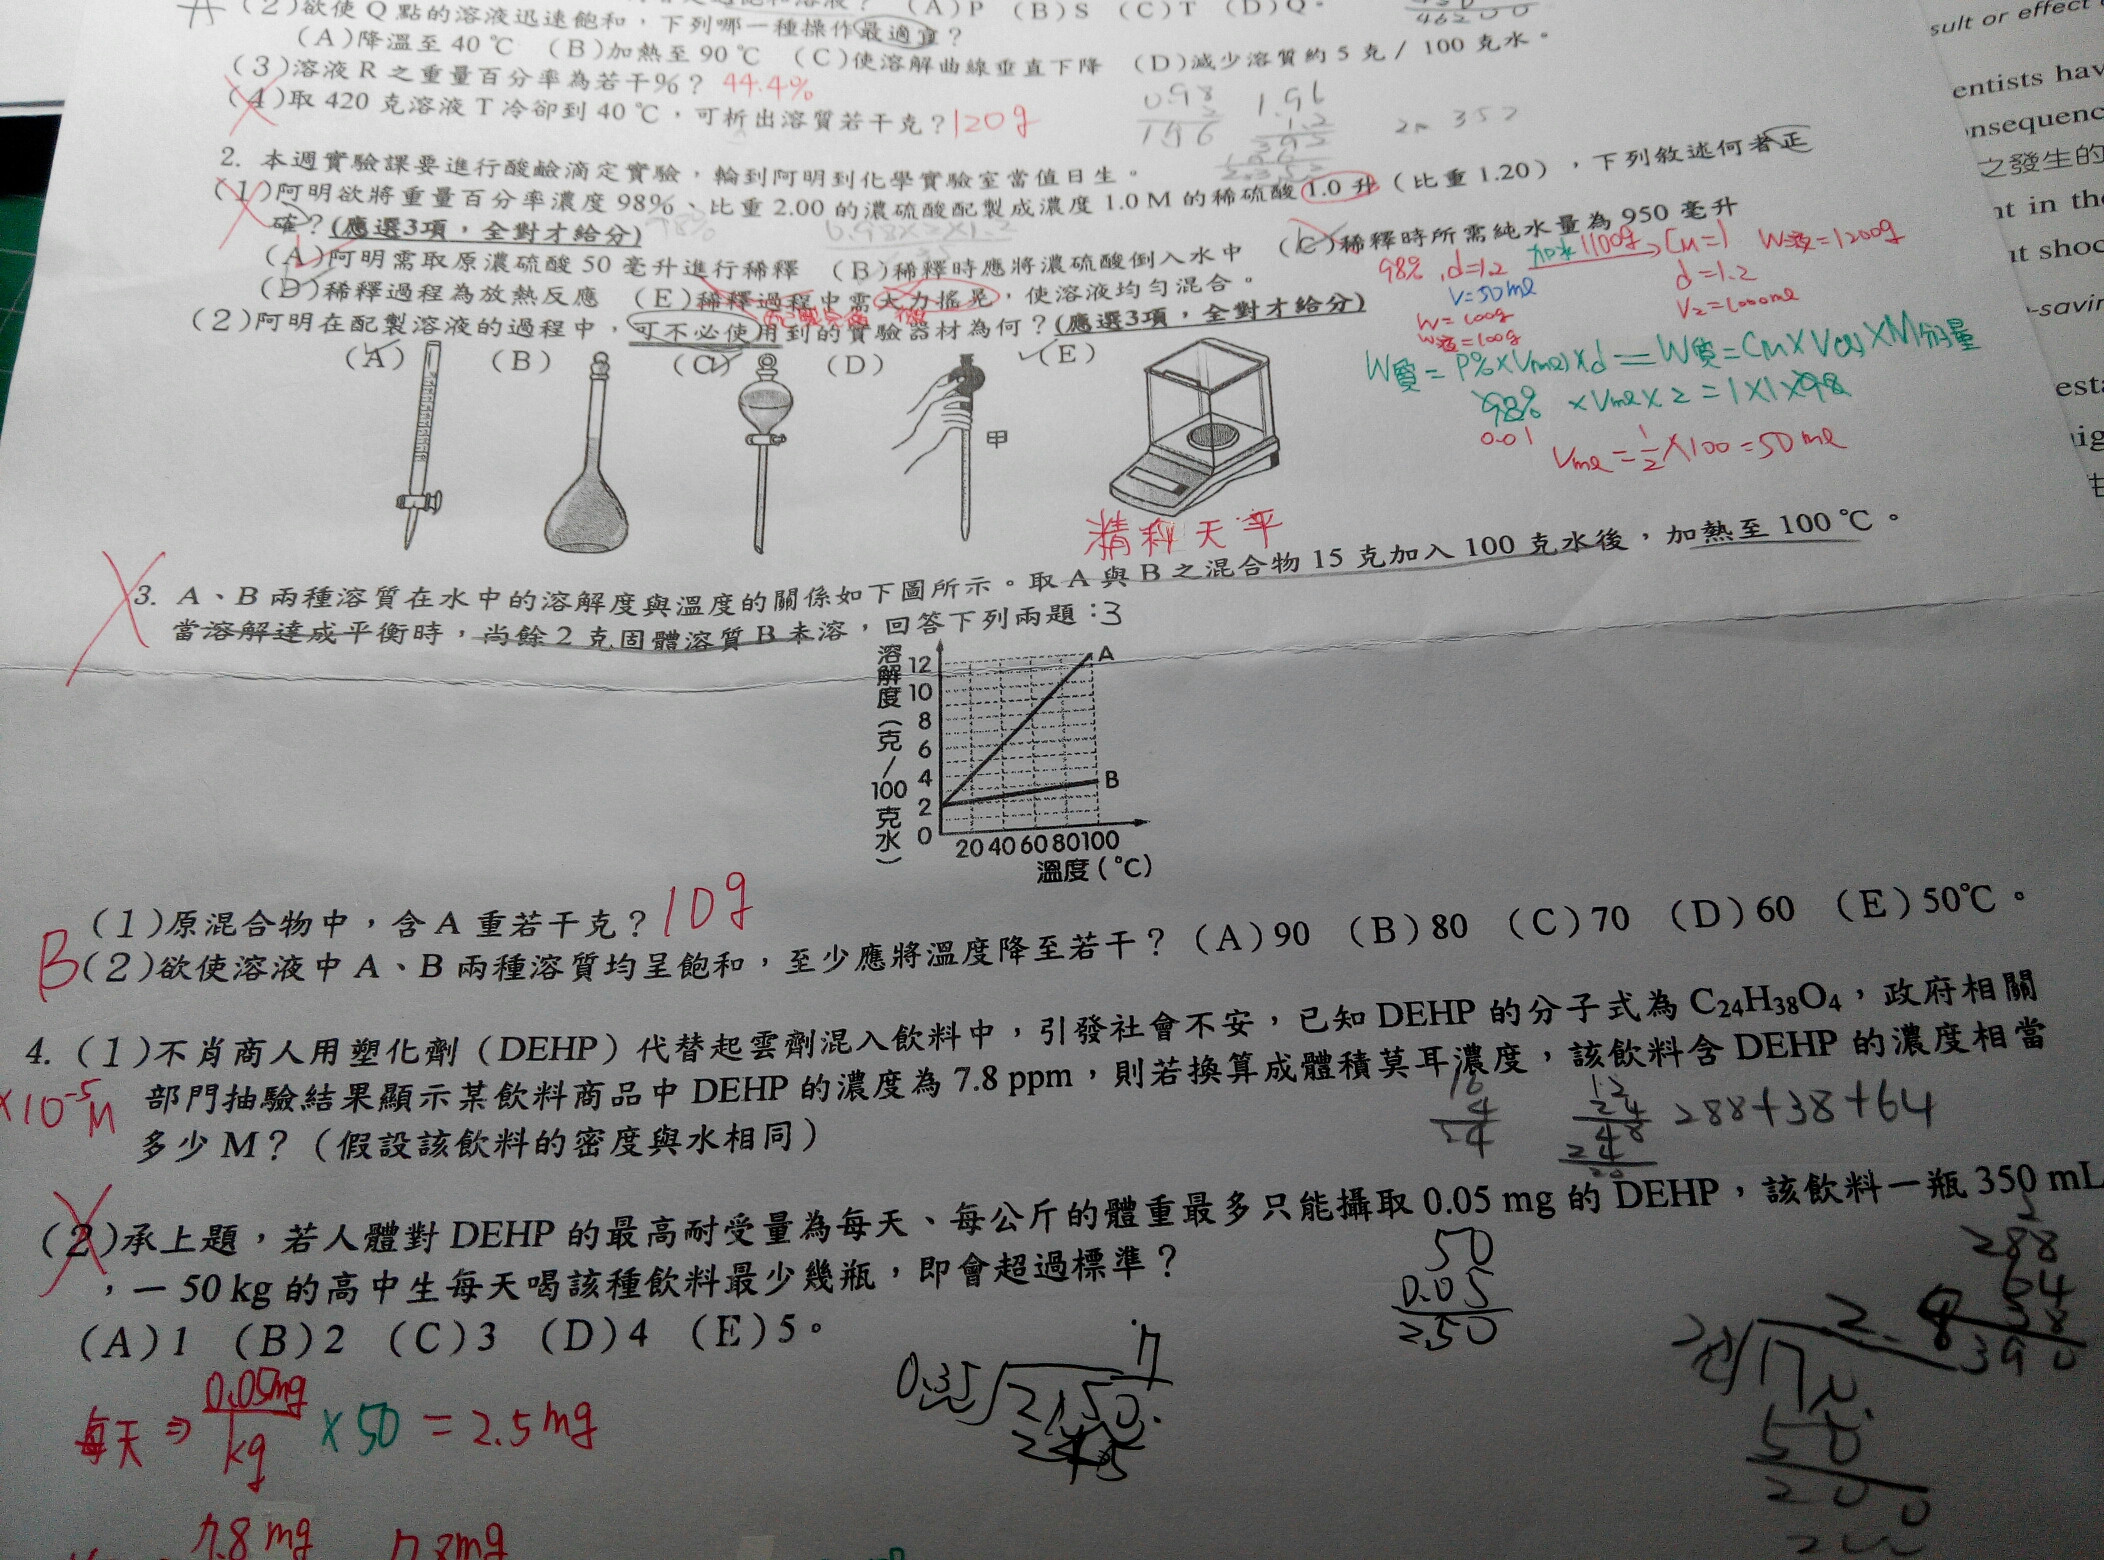 (2)欲使Q點的溶液迅速飽和，下列哪一種操作最適宜？
(A)P (B)S (C)T (D)Q。
46200
(A)降溫至 40 ℃ (B)加熱至 90 ℃ (C)使溶解曲線垂直下降 (D)減少溶質約 5 克 / 100 克水。
(3)溶液 R 之重量百分率為若干%？ 44.4%
(4)取 420 克溶液 T 冷卻到 40 ℃，可析出溶質若干克？ 120g
0.98
2
196
1.96
1.2
392
352
2. 本週實驗課要進行酸鹼滴定實驗，輪到阿明到化學實驗室當值日生。
(1)阿明欲將重量百分率濃度 98%、比重 2.00 的濃硫酸配製成濃度 1.0 M 的稀硫酸 1.0 升（比重 1.20），下列敘述何者正
確？(應選3項，全對才給分)
(A)阿明需取原濃硫酸 50 毫升進行稀釋 (B)稀釋時應將濃硫酸倒入水中 (C)稀釋時所需純水量為 950 毫升
(D)稀釋過程為放熱反應 (E)稀釋過程中需大力搖晃，使溶液均勻混合。
98% , d=1.2 加水 1100g → CM=1 W液=1200g
V=50ml
d=1.2
V2=1000ml
W=100g
W液=100g
W質=P%×V(ml)×d=W質=CM×V(l)×M分子量
98%×Vml×2=1×1×98
0.01
Vml=1/2×100=50ml
(2)阿明在配製溶液的過程中，可不必使用到的實驗器材為何？(應選3項，全對才給分)
(A) (B) (C) (D) (E)
甲
精秤天平
3. A、B 兩種溶質在水中的溶解度與溫度的關係如下圖所示。取 A 與 B 之混合物 15 克加入 100 克水後，加熱至 100 ℃。
當溶解達成平衡時，尚餘 2 克固體溶質 B 未溶，回答下列兩題：3
溶解度（克/100克水）
12
10
8
6
4
2
0
A
B
20 40 60 80 100
溫度(℃)
(1)原混合物中，含 A 重若干克？ 10g
B (2)欲使溶液中 A、B 兩種溶質均呈飽和，至少應將溫度降至若干？(A)90 (B)80 (C)70 (D)60 (E)50℃。
4. (1)不肖商人用塑化劑（DEHP）代替起雲劑混入飲料中，引發社會不安，已知 DEHP 的分子式為 C24H38O4，政府相關
部門抽驗結果顯示某飲料商品中 DEHP 的濃度為 7.8 ppm，則若換算成體積莫耳濃度，該飲料含 DEHP 的濃度相當
多少 M？（假設該飲料的密度與水相同）
×10⁻⁵M
16
4
12
24
48
24
288+38+64
(2)承上題，若人體對 DEHP 的最高耐受量為每天、每公斤的體重最多只能攝取 0.05 mg 的 DEHP，該飲料一瓶 350 mL
，一 50 kg 的高中生每天喝該種飲料最少幾瓶，即會超過標準？
(A)1 (B)2 (C)3 (D)4 (E)5。
50
0.05
2.50
288
64
38
390
每天⇒ 0.05mg/kg ×50 = 2.5mg
0.35
245
7.8mg
sult or effect
entists hav
nsequenc
之發生的
nt in th
it shoc
-savin
est